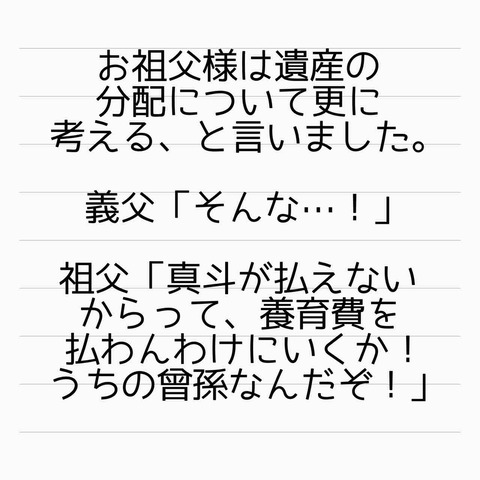 お祖父様は遺産の
分配について更に
考える、と言いました。
義父「そんな…！」
祖父「真斗が払えない
からって、養育費を
払わんわけにいくか！
うちの曾孫なんだぞ！」